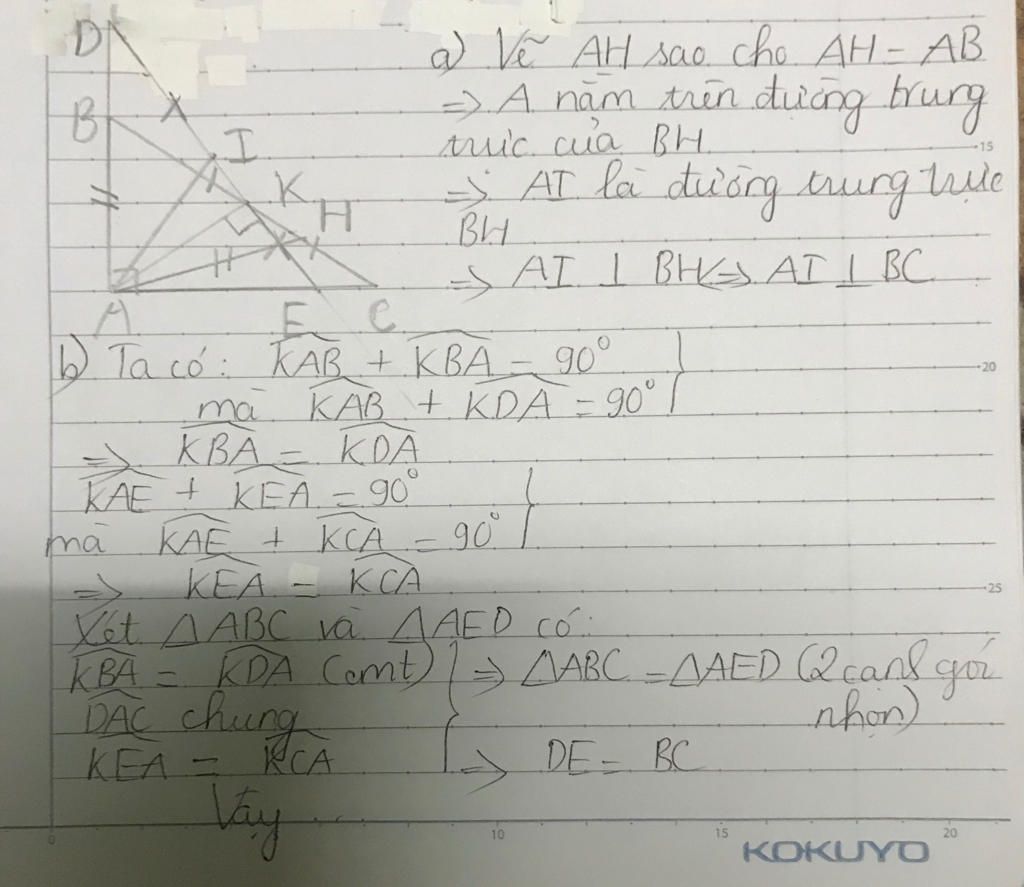 D
B
I
K
H
A
E
C
a) Vẽ AH sao cho AH = AB
=> A nằm trên đường trung
trực của BH
=> AI là đường trung trực
BH
=> AI ⊥ BH <=> AI ⊥ BC
b) Ta có: \widehat{KAB} + \widehat{KBA} = 90°
mà \widehat{KAB} + \widehat{KDA} = 90°
=> \widehat{KBA} = \widehat{KDA}
\widehat{KAE} + \widehat{KEA} = 90°
mà \widehat{KAE} + \widehat{KCA} = 90°
=> \widehat{KEA} = \widehat{KCA}
Xét ΔABC và ΔAED có:
\widehat{KBA} = \widehat{KDA} (cmt)
\widehat{DAC} chung
\widehat{KEA} = \widehat{KCA}
=> ΔABC = ΔAED (2 cạnh góc
nhọn)
=> DE = BC
Vậy ...
15
20
25
0
10
15
20
KOKUYO